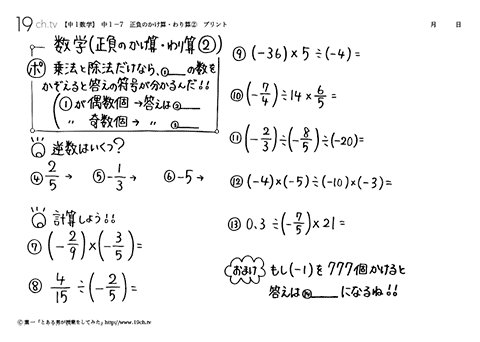 19ch.tv 【中1数学】 中1-7 正負のかけ算・わり算② プリント 月 日
数学(正負のかけ算・わり算②)
ポ 乗法と除法だけなら、①___の数を
かぞえると答えの符号が分かるんだ!!
(①が偶数個→答えは②___
〃 奇数個→ 〃 ③___)
逆数はいくつ?
④ 2/5 → ⑤ -1/3 → ⑥ -5 →
計算しよう!!
⑦ (-2/9)×(-3/5)=
⑧ 4/15 ÷(-2/5)=
⑨ (-36)×5÷(-4)=
⑩ (-7/4)÷14×6/5=
⑪ (-2/3)÷(-8/5)÷(-20)=
⑫ (-4)×(-5)÷(-10)×(-3)=
⑬ 0.3÷(-7/5)×21=
おまけ もし(-1)を777個かけると
答えは⑭___になるね!!
© 葉一「とある男が授業をしてみた」http://www.19ch.tv